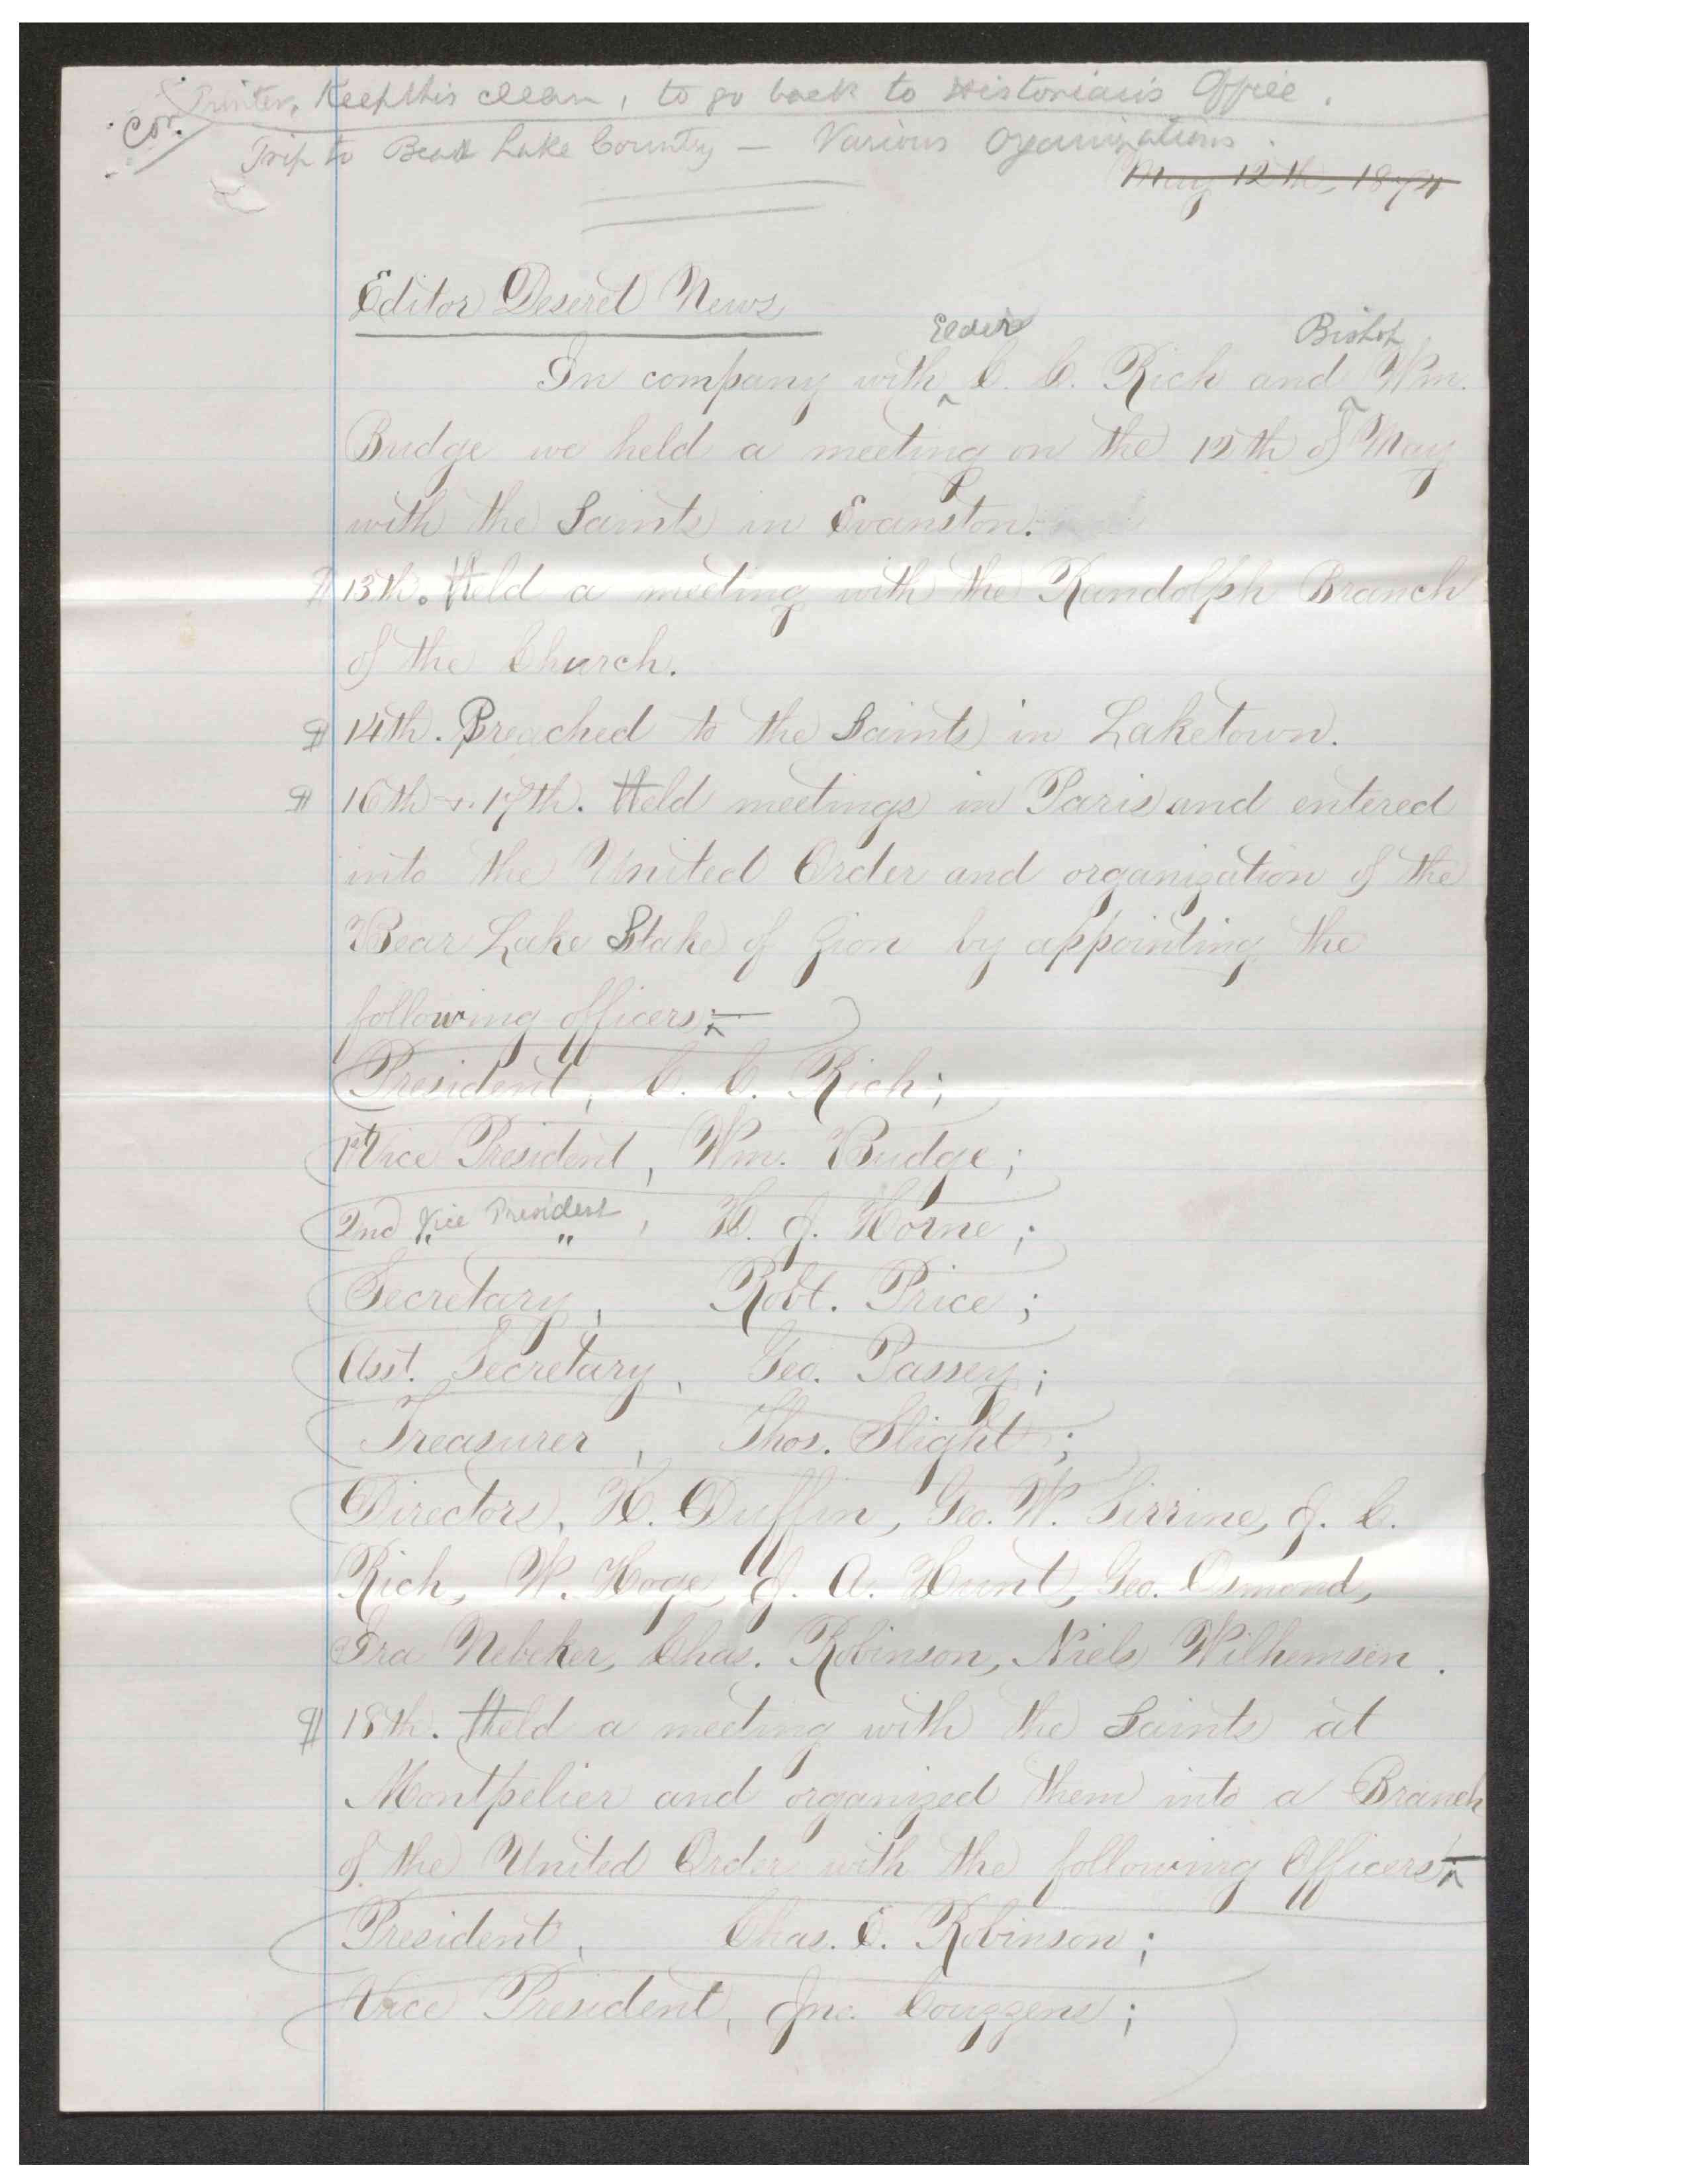 Printer, Keep this clean, to go back to Historian's Office.
Cor.
Trip to Bear Lake Country — Various Organizations.
May 12th, 1874
Editor Deseret News
Elder Bishop
In company with ^ C. C. Rich and ^ Wm.
Budge we held a meeting on the 12th of May
with the Saints in Evanston.
¶ 13th. Held a meeting with the Randolph Branch
of the Church.
¶ 14th. Preached to the Saints in Laketown.
¶ 16th & 17th. Held meetings in Paris and entered
into the United Order and organization of the
Bear Lake Stake of Zion by appointing the
following officers:—
President, C. C. Rich;
1st Vice President, Wm. Budge;
2nd Vice President, H. J. Horne;
" "
Secretary, Robt. Price;
Asst. Secretary, Geo. Passey;
Treasurer, Thos. Slight;
Directors, H. Duffin, Geo. W. Sirrine, J. C.
Rich, W. Hoge, J. A. Hunt, Geo. Osmond,
Ira Nebeker, Chas. Robinson, Niels Wilhemsen.
¶ 18th. Held a meeting with the Saints at
Montpelier and organized them into a Branch
of the United Order with the following Officers:—
President, Chas. E. Robinson;
Vice President, Jno. Couzzens;